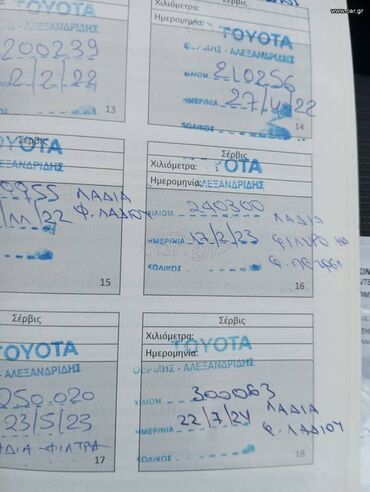 www.car.gr
TOYOTA
ΑΛΕΞΑΝΔΡΙΔΗΣ
200239
2/2/22
13
Σέρβις
TOYOTA
ΑΛΕΞΑΝΔΡΙΔΗΣ
ΧΙΛΙΟΜ. 210256
ΗΜΕΡ/ΝΙΑ 27/4/22
ΚΩΔΙΚΟΣ
14
Σέρβις
TOYOTA
ΑΛΕΞΑΝΔΡΙΔΗΣ
9955 ΛΑΔΙΑ
/11/22 Φ. ΛΑΔΙΟΥ
15
Σέρβις
Χιλιόμετρα: TOYOTA
Ημερομηνία: ΑΛΕΞΑΝΔΡΙΔΗΣ
ΧΙΛΙΟΜ. 240300 ΛΑΔΙΑ
ΗΜΕΡ/ΝΙΑ 17/2/23 ΦΙΛΤΡΟ
ΚΩΔΙΚΟΣ
16
Σέρβις
TOYOTA
- ΑΛΕΞΑΝΔΡΙΔΗΣ
250.020
23/5/23
ΛΑΔΙΑ-ΦΙΛΤΡΑ
17
Σέρβις
Χιλιόμετρα:
Ημερομηνία: TOYOTA
ΘΕΡΜΗΣ - ΑΛΕΞΑΝΔΡΙΔΗΣ
ΧΙΛΙΟΜ. 300063
ΗΜΕΡ/ΝΙΑ 22/7/24 ΛΑΔΙΑ
Φ. ΛΑΔΙΟΥ
ΚΩΔΙΚΟΣ
18